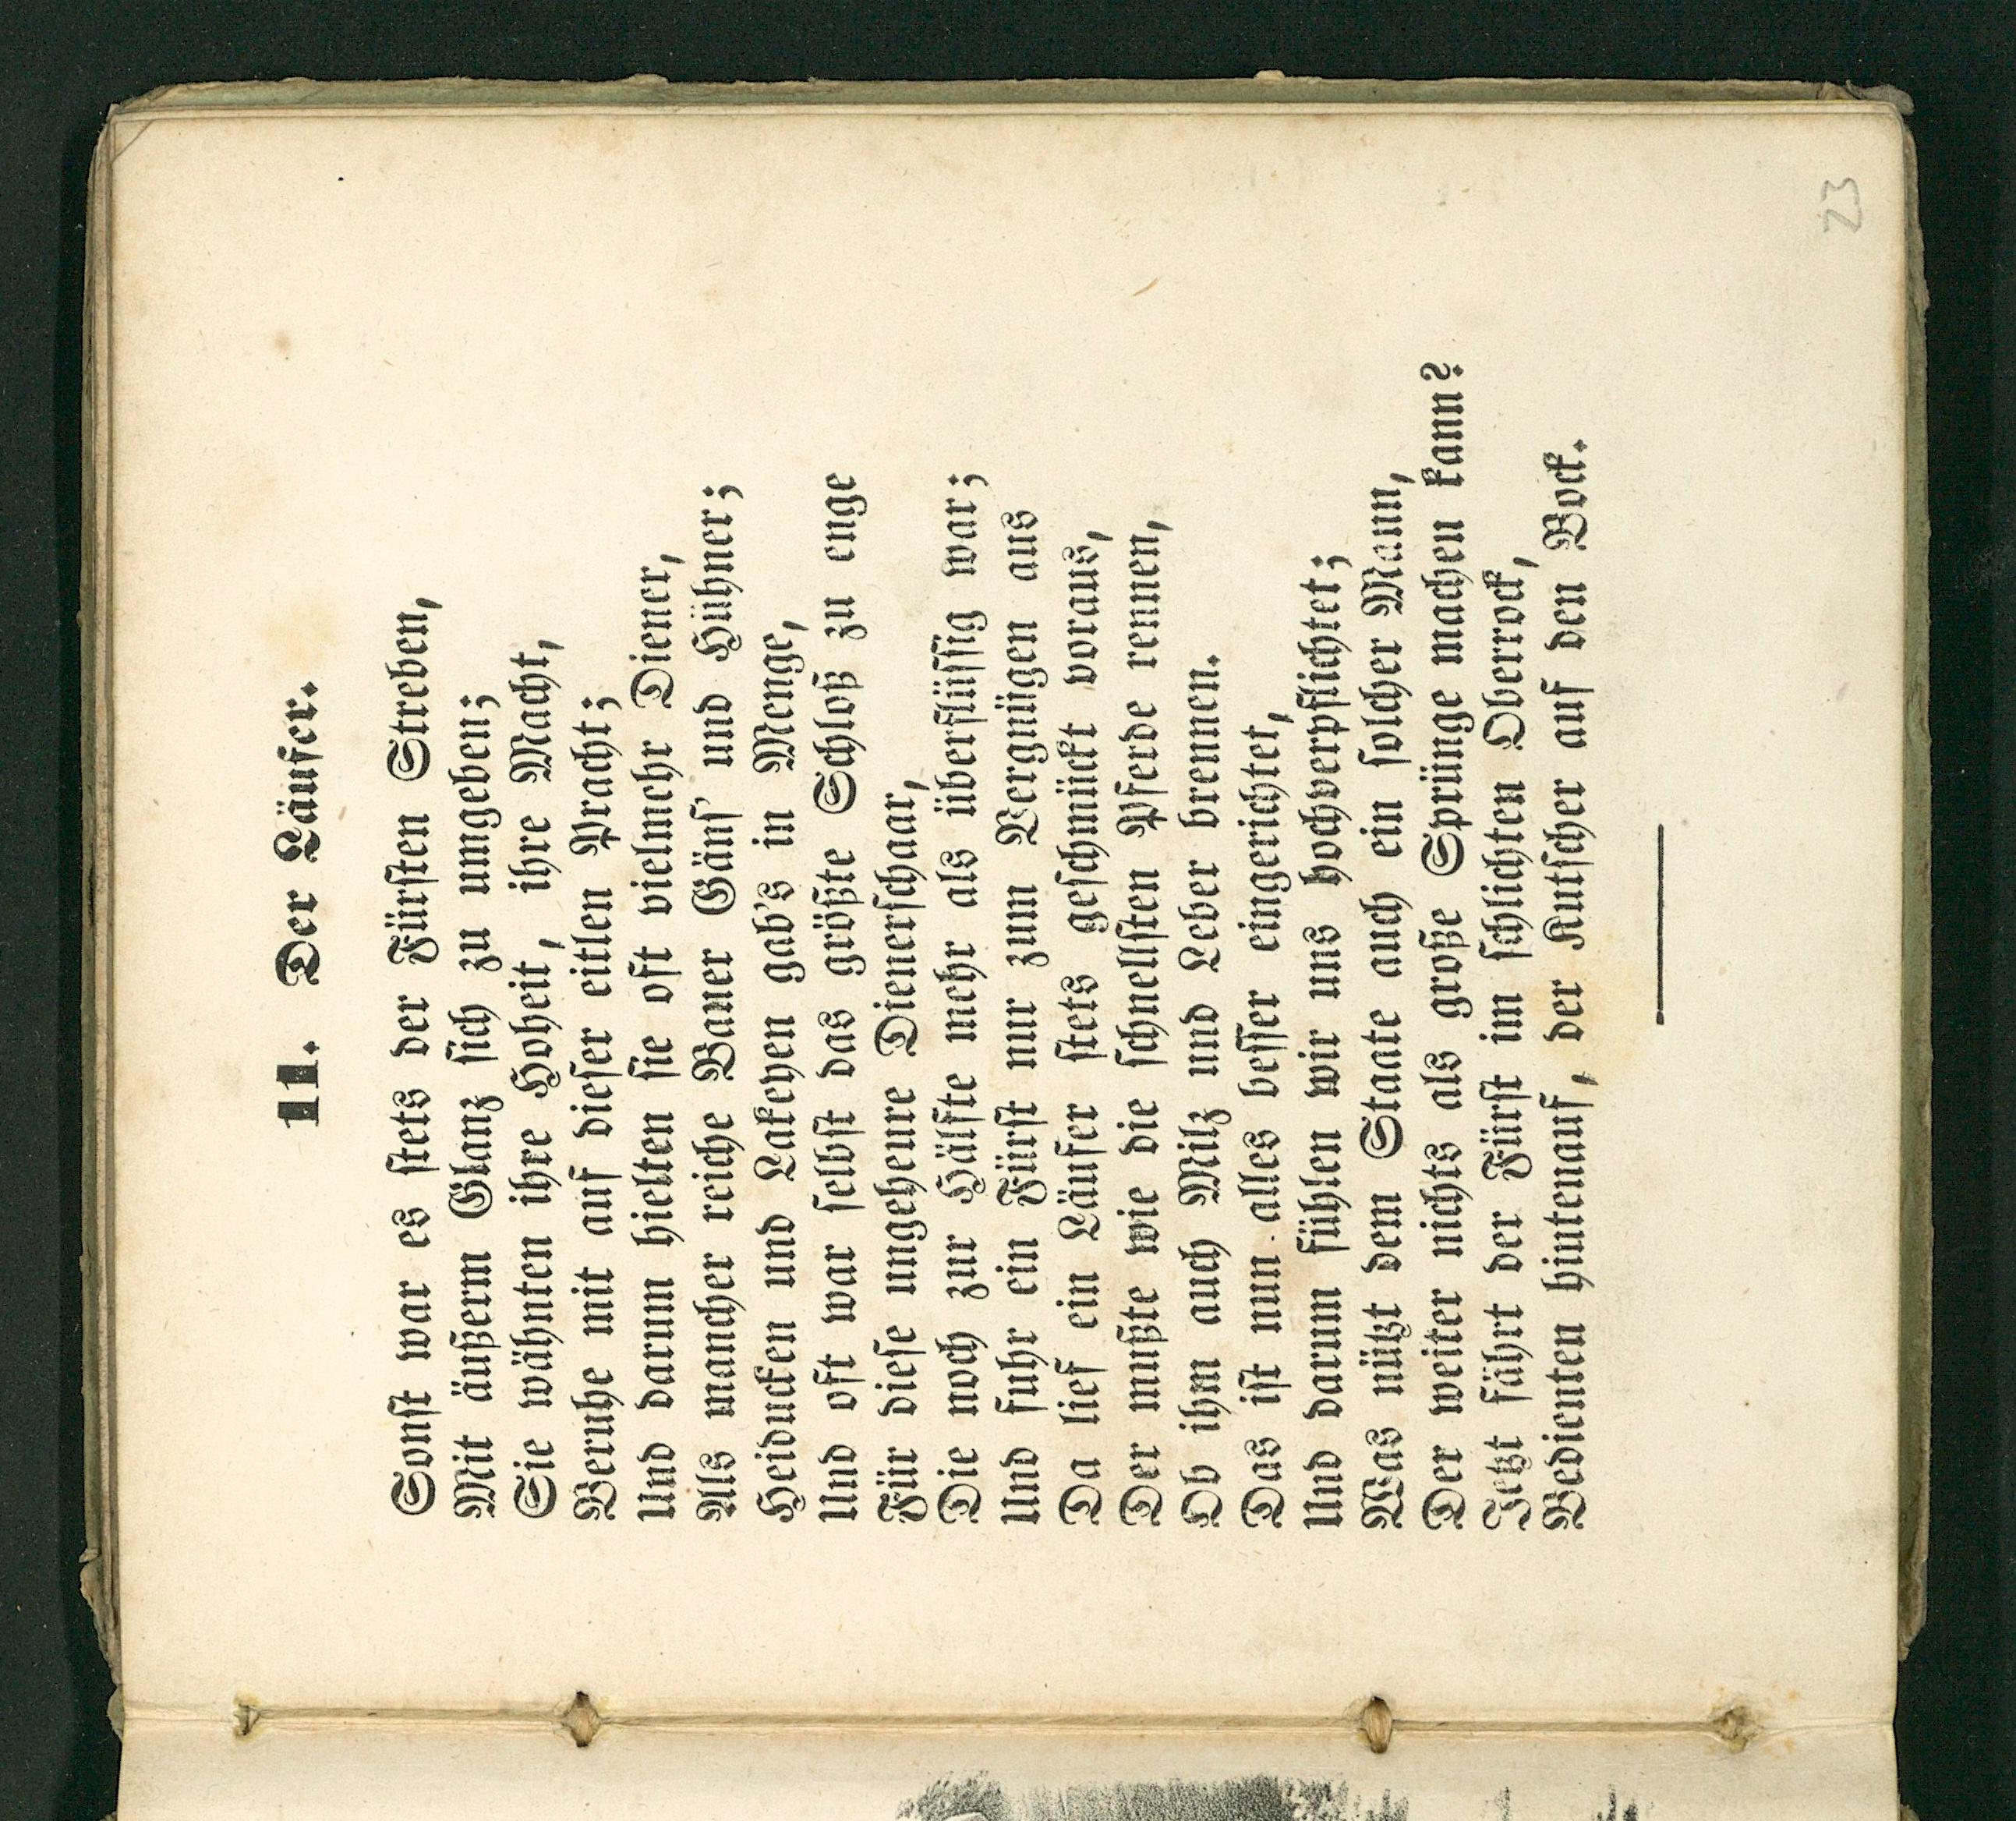 11. Der Läufer.
Sonſt war es ſtets der Fürſten Streben,
Mit äußerm Glanz ſich zu umgeben;
Sie wähnten ihre Hoheit, ihre Macht,
Beruhe mit auf dieſer eitlen Pracht;
Und darum hielten ſie oft vielmehr Diener,
Als mancher reiche Bauer Gänſ' und Hühner;
Heiducken und Lakeyen gab's in Menge,
Und oft war ſelbſt das größte Schloß zu enge
Für dieſe ungeheure Dienerſchaar,
Die noch zur Hälfte mehr als überflüſſig war;
Und fuhr ein Fürſt nur zum Vergnügen aus
Da lief ein Läufer ſtets geſchmückt voraus,
Der mußte wie die ſchnellſten Pferde rennen,
Ob ihm auch Milz und Leber brennen.
Das iſt nun alles beſſer eingerichtet,
Und darum fühlen wir uns hochverpflichtet;
Was nützt dem Staate auch ein ſolcher Mann,
Der weiter nichts als große Sprünge machen kann?
Jetzt fährt der Fürſt im ſchlichten Oberrock,
Bedienten hintenauf, der Kutſcher auf den Bock.
23